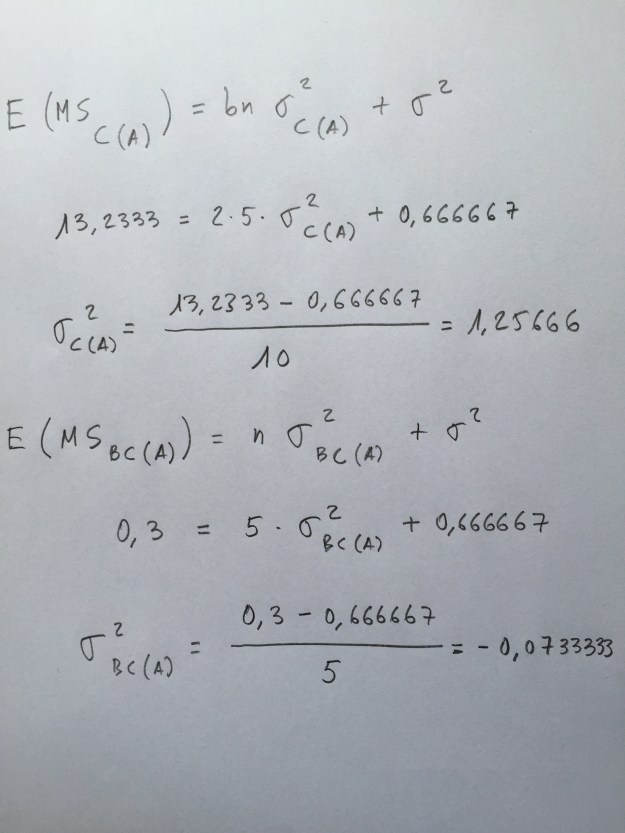 E (MS_{C(A)}) = bn σ²_{C(A)} + σ²
13,2333 = 2·5· σ²_{C(A)} + 0,666667
σ²_{C(A)} = \frac{13,2333 - 0,666667}{10} = 1,25666
E (MS_{BC(A)}) = n σ²_{BC(A)} + σ²
0,3 = 5 · σ²_{BC(A)} + 0,666667
σ²_{BC(A)} = \frac{0,3 - 0,666667}{5} = - 0,0733333